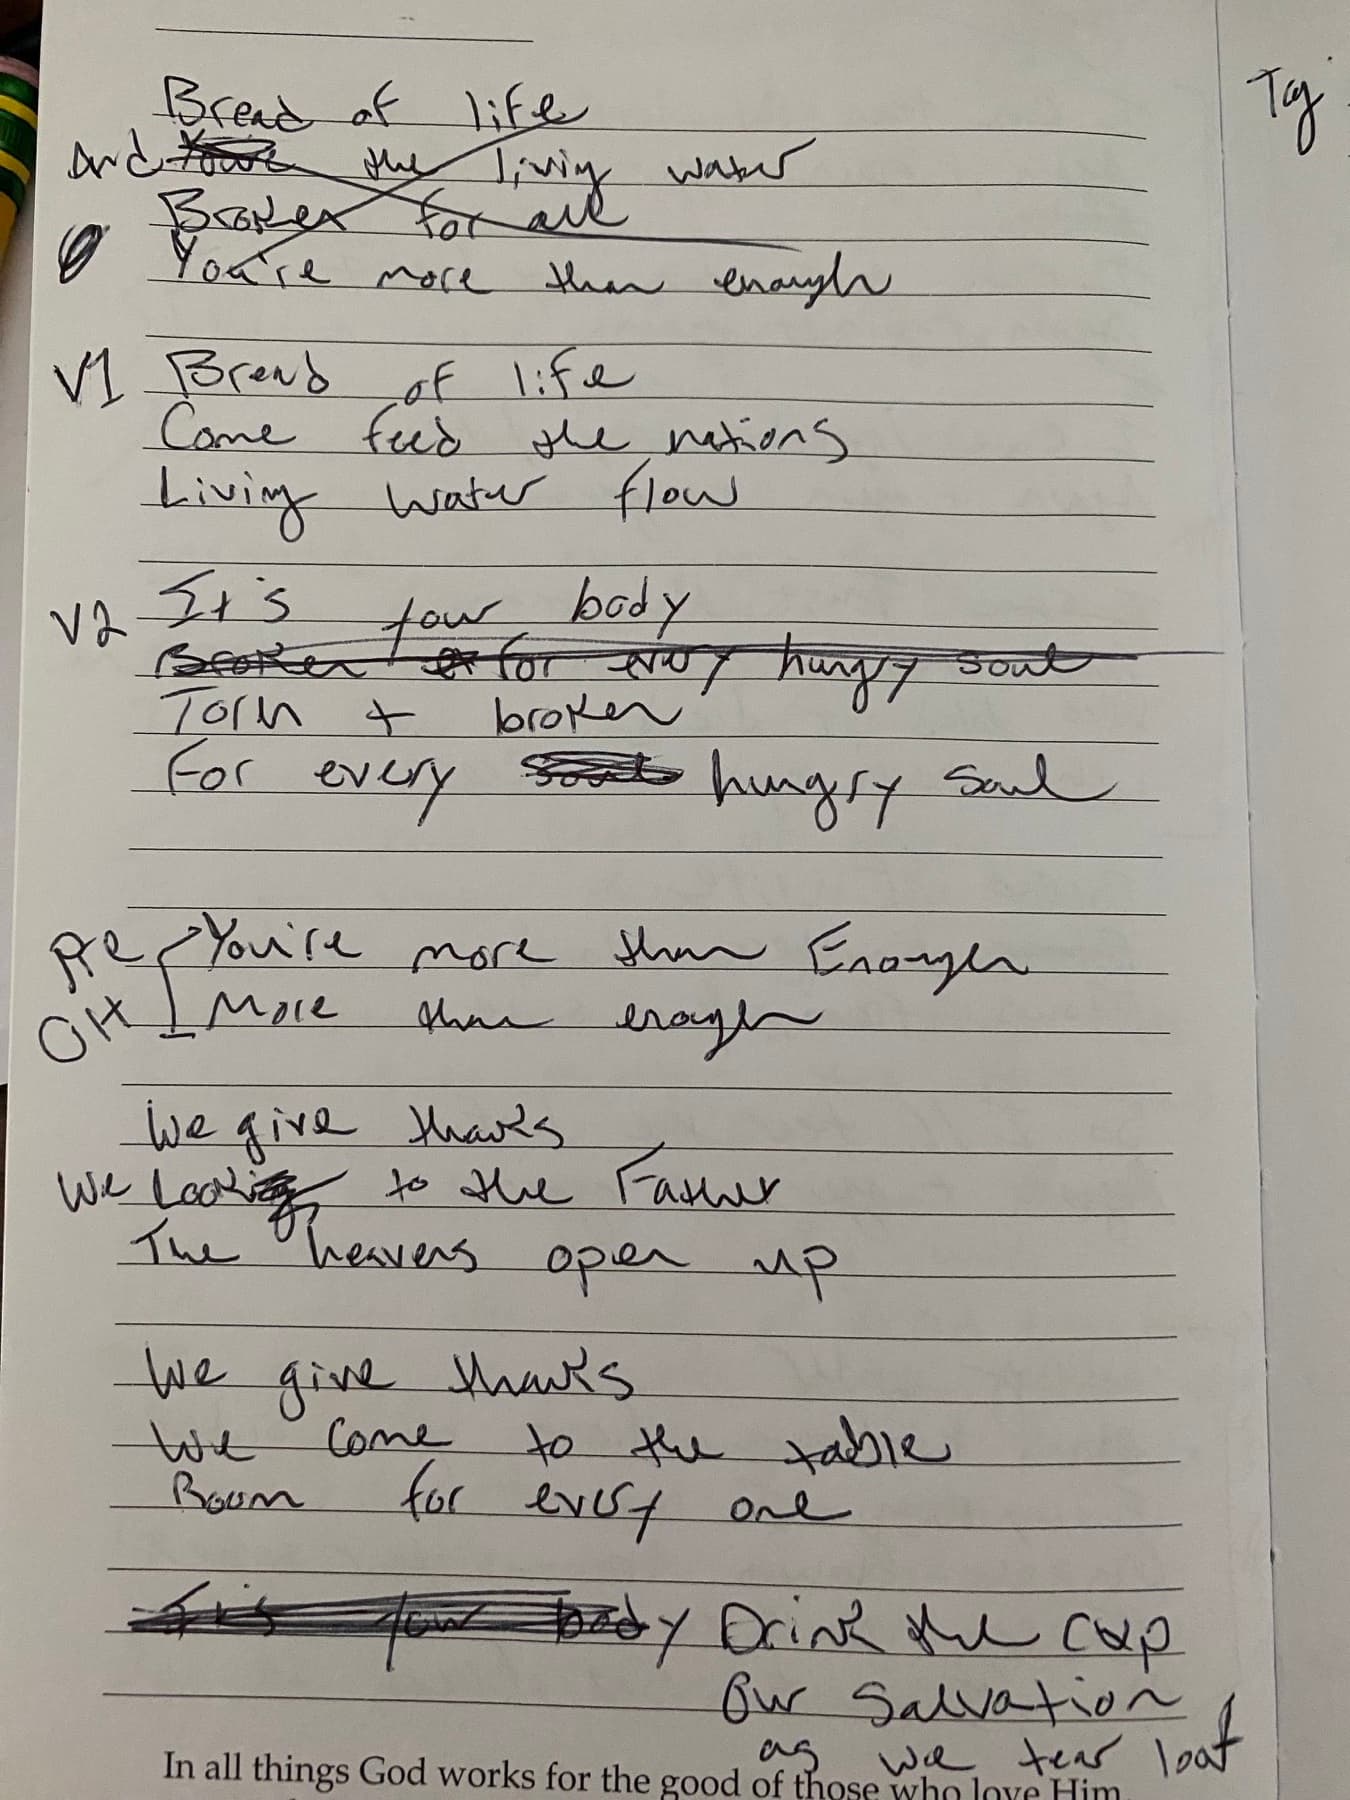 Bread of life
And the living water
Broken for all
You're more than enough
V1 Bread of life
Come feed the nations
Living water flow
V2 It's your body
Broken for every hungry soul
Torn + broken
For every hungry soul
PRE You're more than Enough
CH More than enough
We give thanks
We Look to the Father
The heavens open up
We give thanks
We come to the table
Room for every one
It's your body Drink the cup
Our Salvation
as we tear loaf
In all things God works for the good of those who love Him
Tag